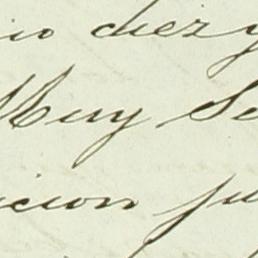 io diez y
Muy Se
icion pu